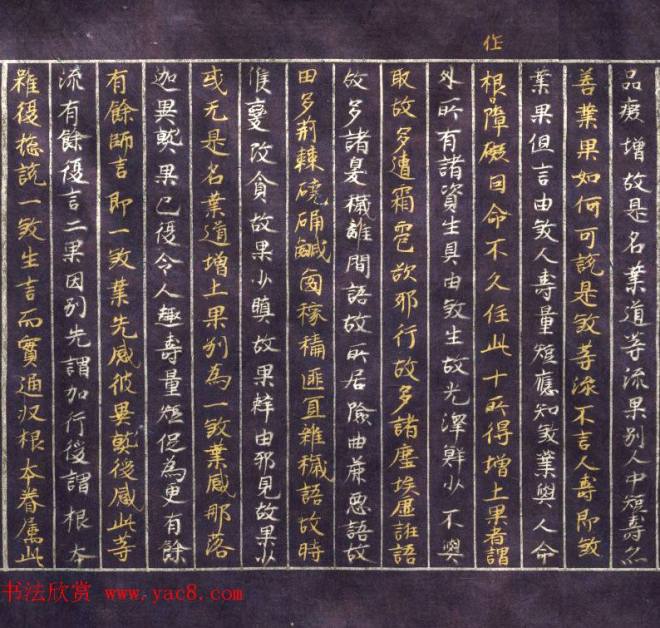 品癡增故是名業道等流果別人中短壽亦
善業果如何可說是煞等流不言人壽即煞
業果但言由煞人壽量短應知煞業與人命
作
根障礙因命不久住此十所得增上果者謂
外所有諸資生具由煞生故光澤尠少不與
取故多遭霜雹欲邪行故多諸塵埃虛誑語
故多諸臭穢離間語故所居險曲麁惡語故
田多荊棘磽确鹹鹵稼穡匪宜雜穢語故時
候變改貪故果少瞋故果辣由邪見故果少
或无是名業道增上果別為一煞業感那落
迦異熟果已復令人趣壽量短促為更有餘
有餘師言即一煞業先感彼異熟後感此等
流有餘復言二果因別先謂加行後謂根本
雖復捴說一煞生言而實通收根本眷屬此
书法欣赏 www.yac8.com